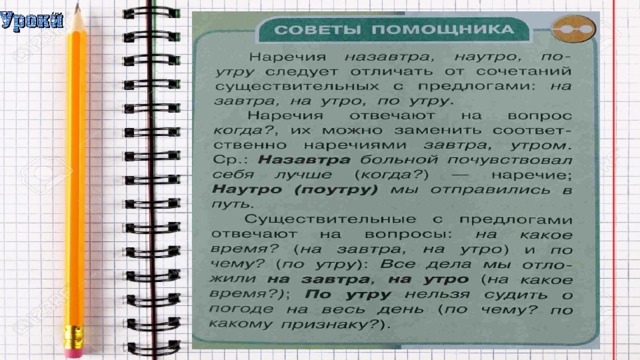 Уроки
СОВЕТЫ ПОМОЩНИКА
Наречия назавтра, наутро, по-
утру следует отличать от сочетаний
существительных с предлогами: на
завтра, на утро, по утру.
Наречия отвечают на вопрос
когда?, их можно заменить соответ-
ственно наречиями завтра, утром.
Ср.: Назавтра больной почувствовал
себя лучше (когда?) — наречие;
Наутро (поутру) мы отправились в
путь.
Существительные с предлогами
отвечают на вопросы: на какое
время? (на завтра, на утро) и по
чему? (по утру): Все дела мы отло-
жили на завтра, на утро (на какое
время?); По утру нельзя судить о
погоде на весь день (по чему? по
какому признаку?).